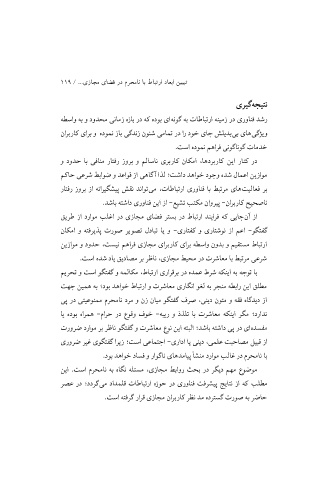 تبیین ابعاد ارتباط با نامحرم در فضای مجازی... / ۱۱۹
نتیجه‌گیری
رشد فناوری در زمینه ارتباطات به گونه‌ای بوده که در بازه زمانی محدود و به واسطه
ویژگی‌های بی‌بدیلش جای خود را در تمامی شئون زندگی باز نموده و برای کاربران
خدمات گوناگونی فراهم نموده است.
در کنار این کاربردها، امکان کاربری ناسالم و بروز رفتار منافی با حدود و
موازین اعمال شده وجود خواهد داشت؛ لذا آگاهی از قواعد و ضوابط شرعی حاکم
بر فعالیت‌های مرتبط با فناوری ارتباطات، می‌تواند نقش پیشگیرانه از بروز رفتار
ناصحیح کاربران- پیروان مکتب تشیع- از این فناوری داشته باشد.
از آن‌جایی که فرایند ارتباط در بستر فضای مجازی در اغلب موارد از طریق
گفتگو- اعم از نوشتاری و گفتاری- و یا تبادل تصویر صورت پذیرفته و امکان
ارتباط مستقیم و بدون واسطه برای کاربرای مجازی فراهم نیست، حدود و موازین
شرعی مرتبط با معاشرت در محیط مجازی، ناظر بر مصادیق یاد شده است.
یا توجه به اینکه شرط عمده در برقراری ارتباط، مکالمه و گفتگو است و تحریم
مطلق این رابطه منجر به لغو انگاری معاشرت و ارتباط خواهد بود؛ به همین جهت
از دیدگاه فقه و متون دینی، صرف گفتگو میان زن و مرد نامحرم ممنوعیتی در پی
ندارد؛ مگر اینکه معاشرت با تلذذ و ریبه- خوف وقوع در حرام- همراه بوده یا
مفسده‌ای در پی داشته باشد؛ البته این نوع معاشرت و گفتگو ناظر بر موارد ضرورت
از قبیل مصاحبت علمی، دینی یا اداری- اجتماعی است؛ زیرا گفتگوی غیر ضروری
با نامحرم در غالب موارد منشأ پیامدهای ناگوار و فساد خواهد بود.
موضوع مهم دیگر در بحث روابط مجازی، مسئله نگاه به نامحرم است. این
مطلب که از نتایج پیشرفت فناوری در حوزه ارتباطات قلمداد می‌گردد؛ در عصر
حاضر به صورت گسترده مد نظر کاربران مجازی قرار گرفته است.